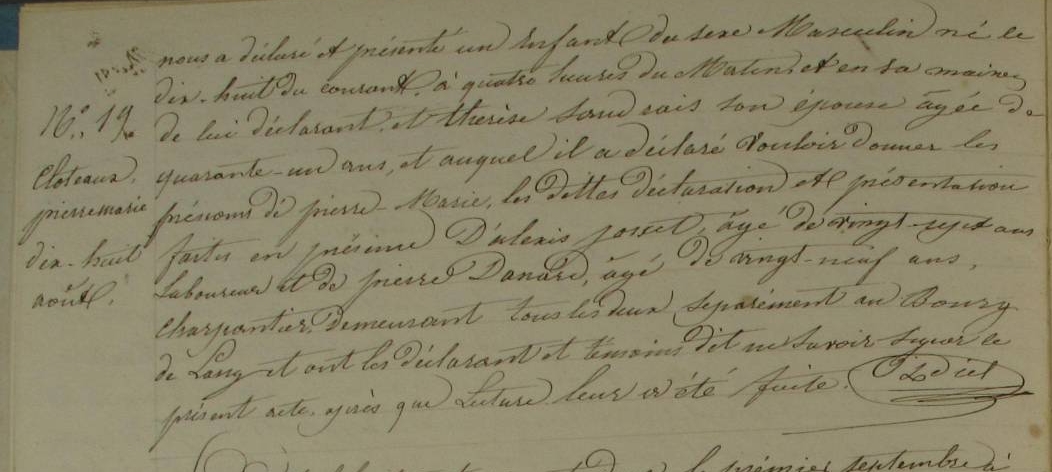 nous a déclaré et présenté un Enfant du sexe Masculin né le
dix-huit du courant, à quatre heures du Matin et en sa maison
de lui déclarant, et thérèse son épouse âgée de
quarante-un ans, et auquel il a déclaré vouloir donner les
prénoms de pierre-Marie, les dittes déclaration et présentation
faites en présence D'alexis josset, âgé de vingt-sept ans
Laboureur et de pierre Danard, âgé de vingt-neuf ans,
charpentier, Demeurant tous les deux separément au Bourg
de et ont les déclarant et témoins dit ne savoir signer le
présent acte, après que Lecture leur a été faite.
N.° 19.
Cloteaux,
pierre marie
dix-huit
août.
prémier septembre à